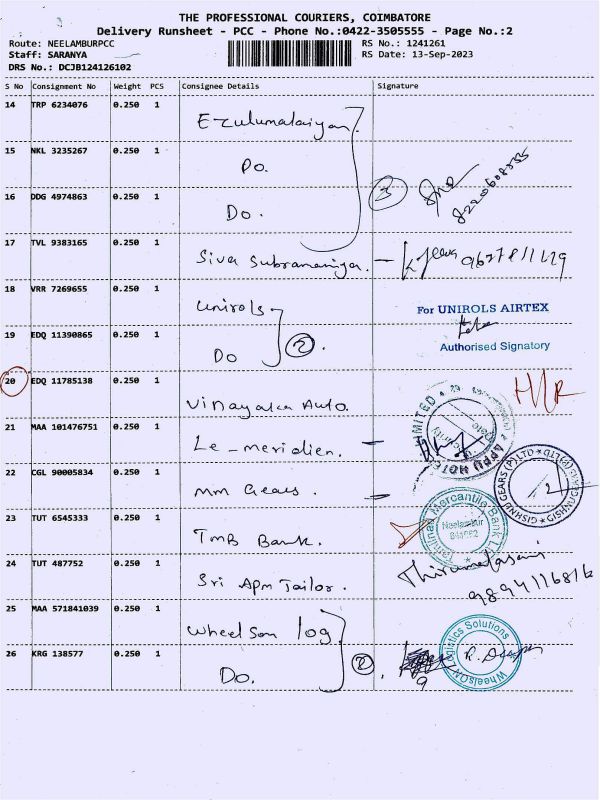 THE PROFESSIONAL COURIERS, COIMBATORE
Delivery Runsheet - PCC - Phone No.:0422-3505555 - Page No.:2
Route: NEELAMBURPCC RS No.: 1241261
Staff: SARANYA RS Date: 13-Sep-2023
DRS No.: DCJB124126102
S No Consignment No Weight PCS Consignee Details Signature
14 TRP 6234076 0.250 1 Ezulumalaiyan
15 NKL 3235267 0.250 1 Do.
16 DDG 4974863 0.250 1 Do. 3
17 TVL 9383165 0.250 1 Siva Subramaniya.
18 VRR 7269655 0.250 1 Unirols For UNIROLS AIRTEX
19 EDQ 11390865 0.250 1 Do 2. Authorised Signatory
20 EDQ 11785138 0.250 1 Vinayaka Auto.
21 MAA 101476751 0.250 1 Le-meridien.
22 CGL 90005834 0.250 1 mm Gears. GISHNU GEARS (P) LTD
23 TUT 6545333 0.250 1 TMB Bank. Tamilnad Mercantile Bank Ltd Neelambur
24 TUT 487752 0.250 1 Sri Apm Tailor.
25 MAA 571841039 0.250 1 Wheelson log. WheelsON Logistics Solutions
26 KRG 138577 0.250 1 Do. 2.